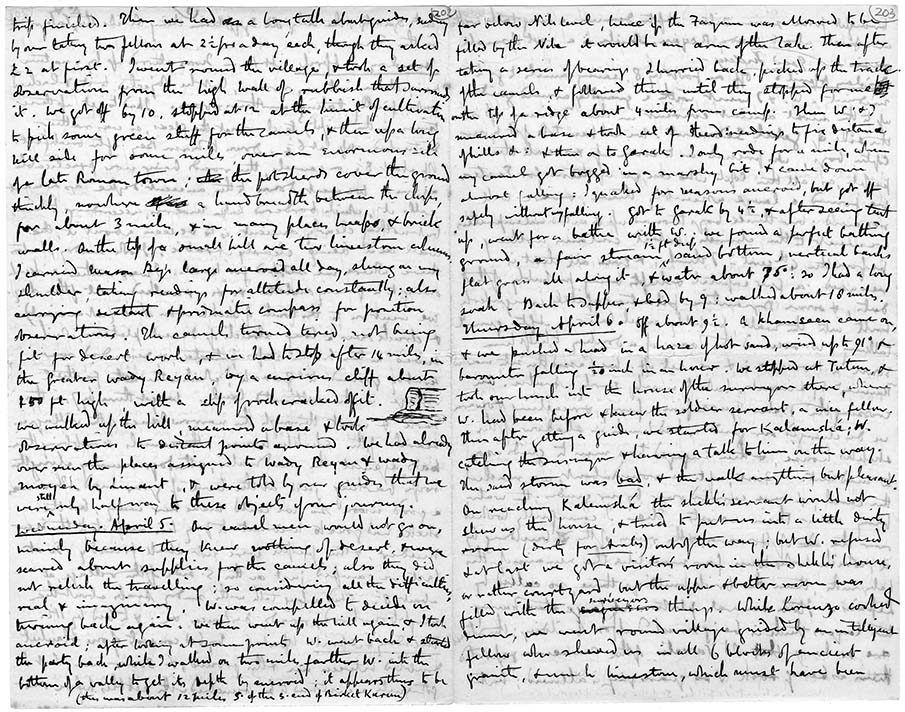 202
trip finished. Then we had a long talk about guides, ending
by our taking two fellows at 2½ frs a day, each, though they asked
£2 at first. I went round the village, & took a set of
observations from the high wall of rubbish that surrounds
it. We got off by 10. stopped at 12 at the limit of cultivation
to pick some green stuff for the camels, & then up a long
hill side for some miles, over an enormous site
of a late Roman town; the potsherds cover the ground
thickly, nowhere a handbreadth between the chips,
for about 3 miles, & in many places heaps, & brick
walls. On the top of a small hill are two limestone columns,
I carried large aneroid all day, slung on my
shoulder, taking readings for altitude constantly; also
carrying sextant & prismatic compass for position
observations. The camels turned tired, not being
fit for desert work, & we had to stop after 14 miles, in
the greater Wady Reyan, by a curious cliff about
150 ft high with a slip of rock cracked off it.
We walked up the hill, measured a base & took
observations to distant points around. We had already
over run the places assigned to Wady Reyan & Wady
by Linant. & were told by our guides that we
were still only halfway to these objects of our journey.
Wednesday. April 5. Our camel men would not go on,
mainly because they knew nothing of desert, & were
scared about supplies for the camels; also they did
not relish the travelling; so considering all the difficulties
real & imaginary, W. was compelled to decide on
turning back again. We then went up the hill again, & I took
aneroid; after looking at some points W. went back &
the party back, while I walked on two miles farther W. into the
bottom of a valley to get its depth by aneroid; it appears thus to be
(this was about 12 miles S. of the S. end of Birket Kerun)
203
far below Nile level hence if the Fayum was allowed to be
filled by the Nile it would be an arm of the lake. Then after
taking a series of bearings I hurried back, picked up the track
of the camels, & followed them until they stopped for me
on the top of a ridge about 4 miles from camp. Then W. & I
measured a base & took set of readings to fix distance
of hills &c: & then on to Garak. I only rode for a mile, when
my camel got bogged in a marshy bit, & came down
almost falling. I quaked for reasons aneroid, but got off
safely without falling. Got to Garak by 4½, & after seeing tent
up, went for a bathe with W.: we found a perfect bathing
ground, a fair stream, 1½ ft deep, sand bottom, vertical banks
flat grass all along it, & water about 75°: so I had a long
soak. Back to supper & bed by 9: walked about 18 miles.
Thursday April 6. Off about 9½. A khamseen came on,
& we pushed ahead in a haze of hot sand, wind up to 91° &
barometer falling 1/20 inch in an hour. We stopped at Tutun, &
took our lunch into the house of the surveyor there, where
W. had been before & knew the soldier servant, a nice fellow.
then after getting a guide, we started for Kalamsha; W.
catching the surveyor & having a talk to him on the way.
The sand storm was bad: & the walk anything but pleasant.
On reaching Kalamsha the shekh's servant would not
shew us the house, & tried to put us into a little dirty
room (dirty for Arabs) out of the way; but W. refused
& at last we got a visitors room in the shekh's house,
or rather courtyard but the upper & better room was
filled with the surveyors things. While Lorenzo cooked
dinner, we went round village guided by an intelligent
fellow who shewed us in all 6 blocks of ancient
granite, & much limestone, which must have been